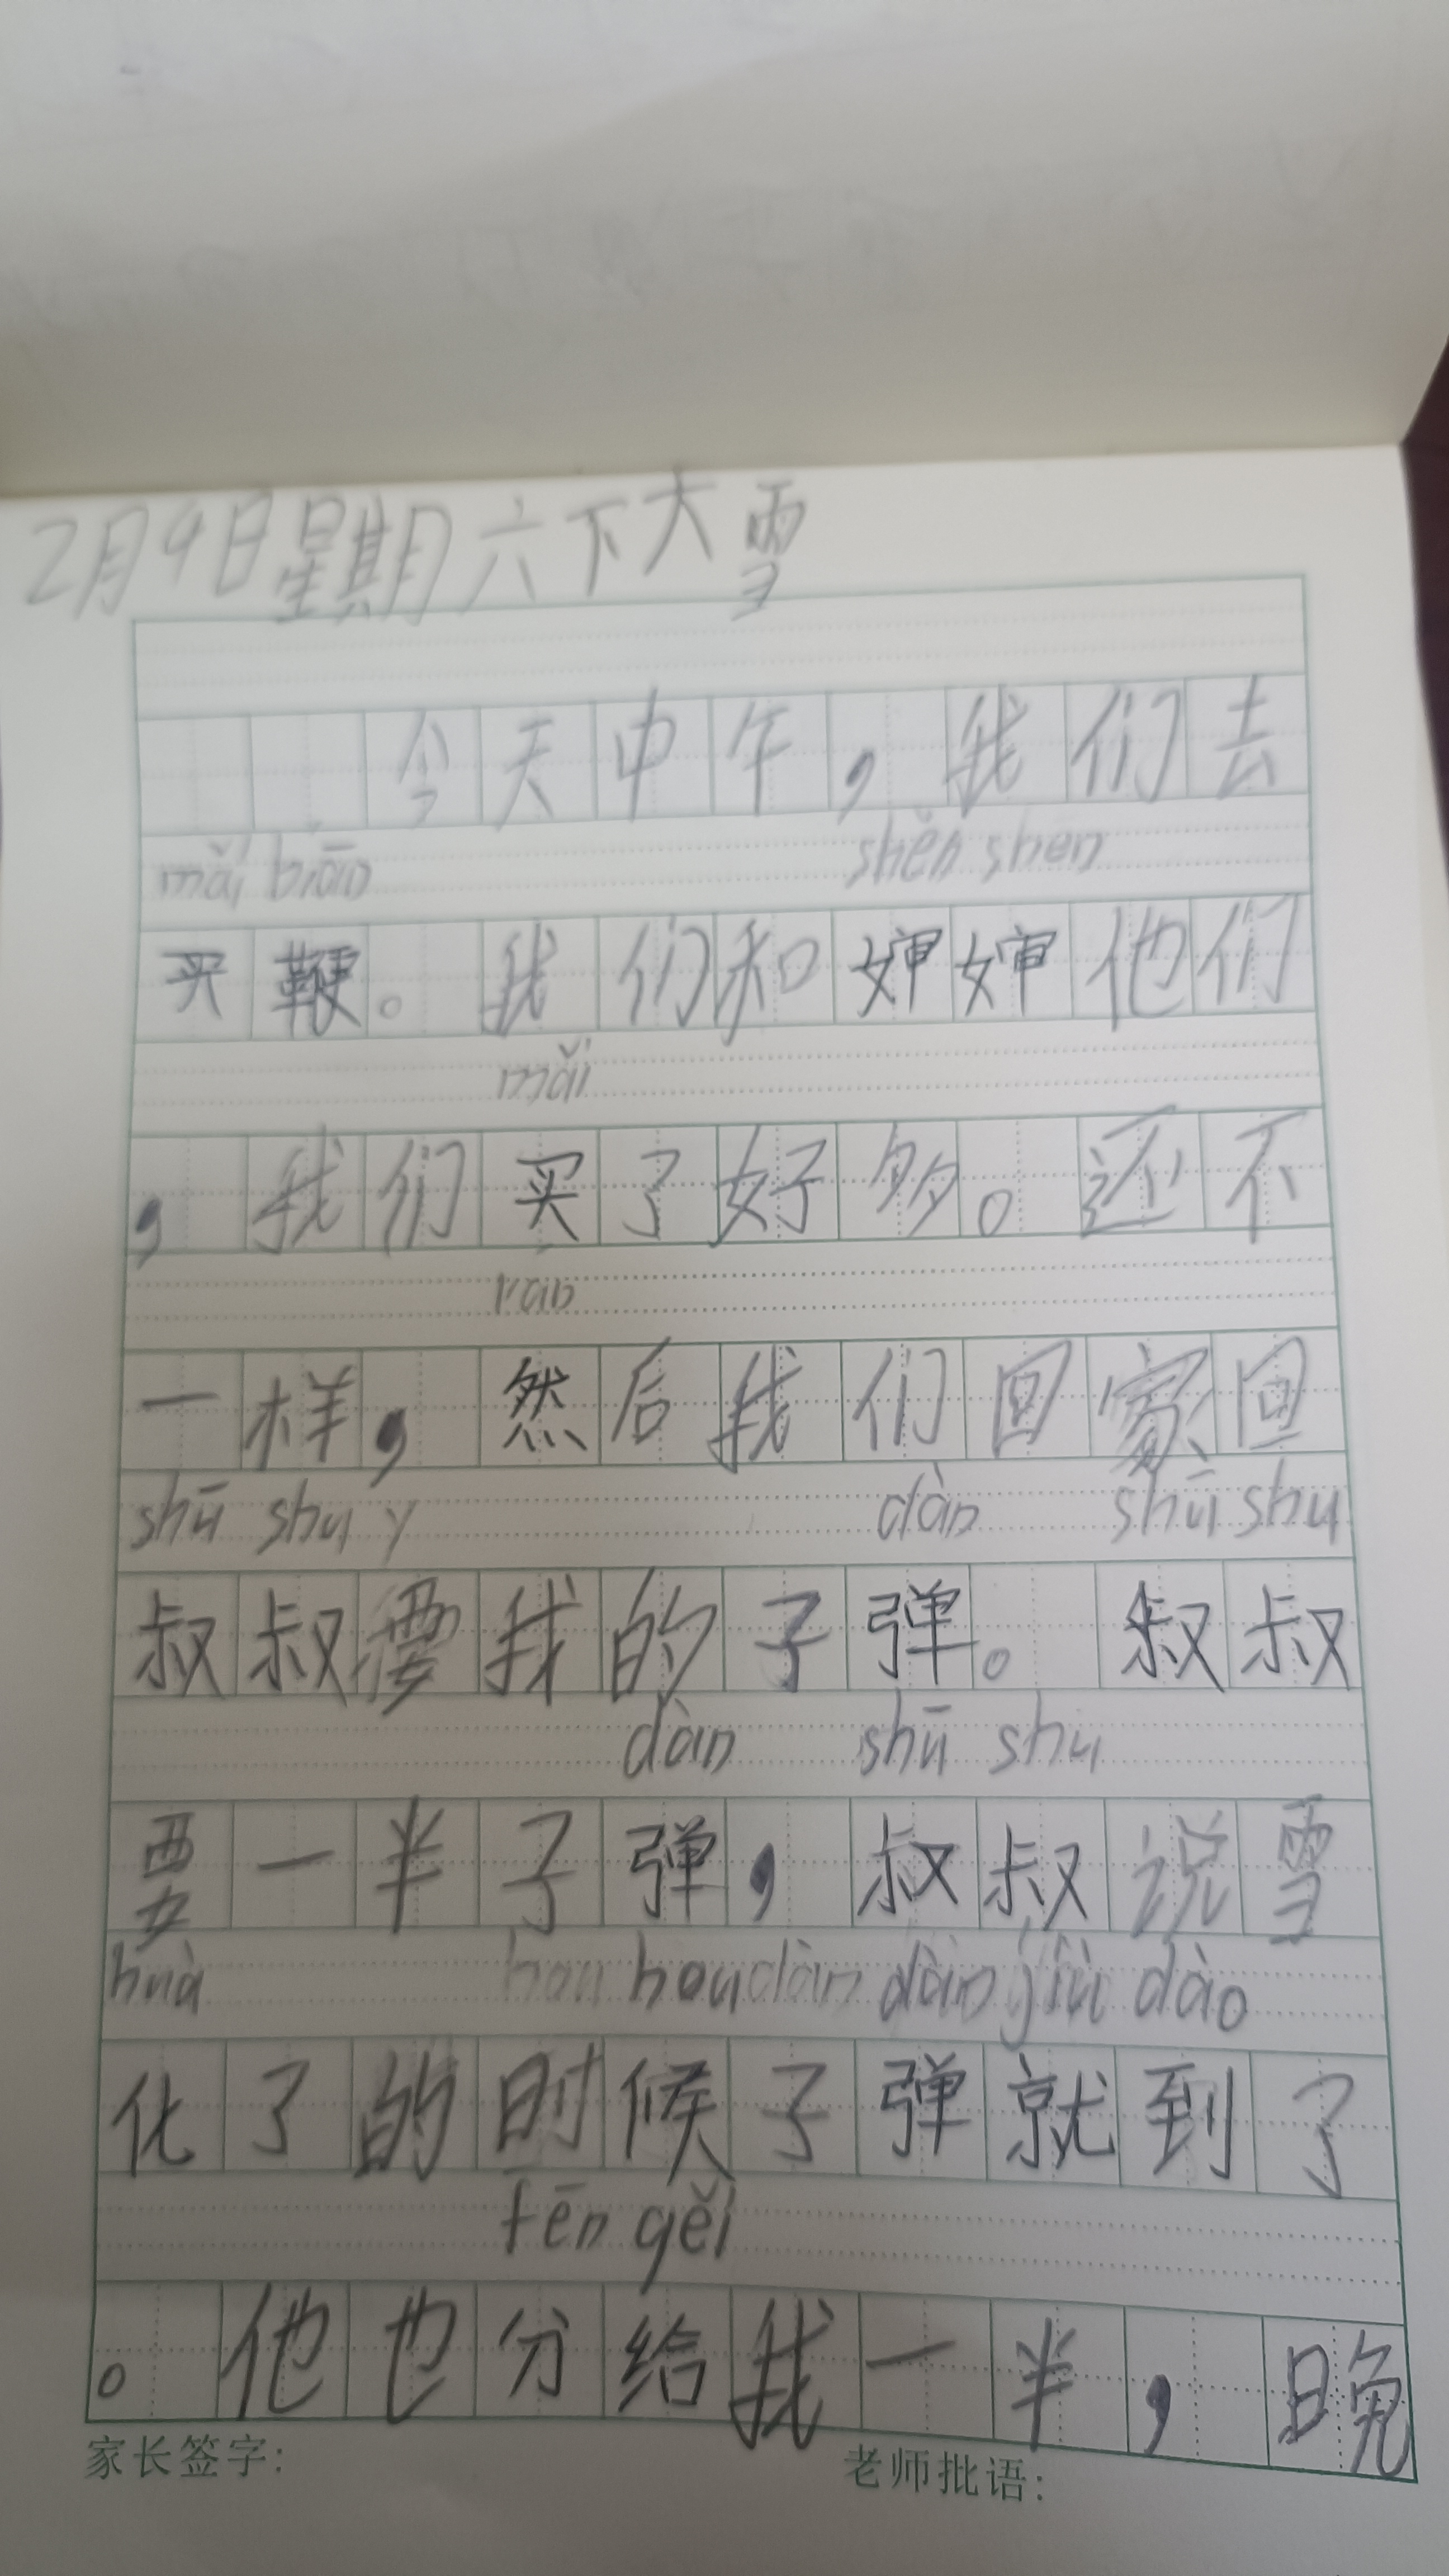 2月9日星期六下大雪
今天中午，我们去
mǎi biān shěn shen
买鞭。我们和婶婶他们
mǎi
，我们买了好多。还不
ran
一样，然后我们回家回
shū shu y dàn shū shu
叔叔要我的子弹。叔叔
dàn shū shu
要一半子弹，叔叔说雪
huà hou hou dàn dàn jiù dào
化了的时候子弹就到了
fēn gěi
。他也分给我一半，晚
家长签字： 老师批语：